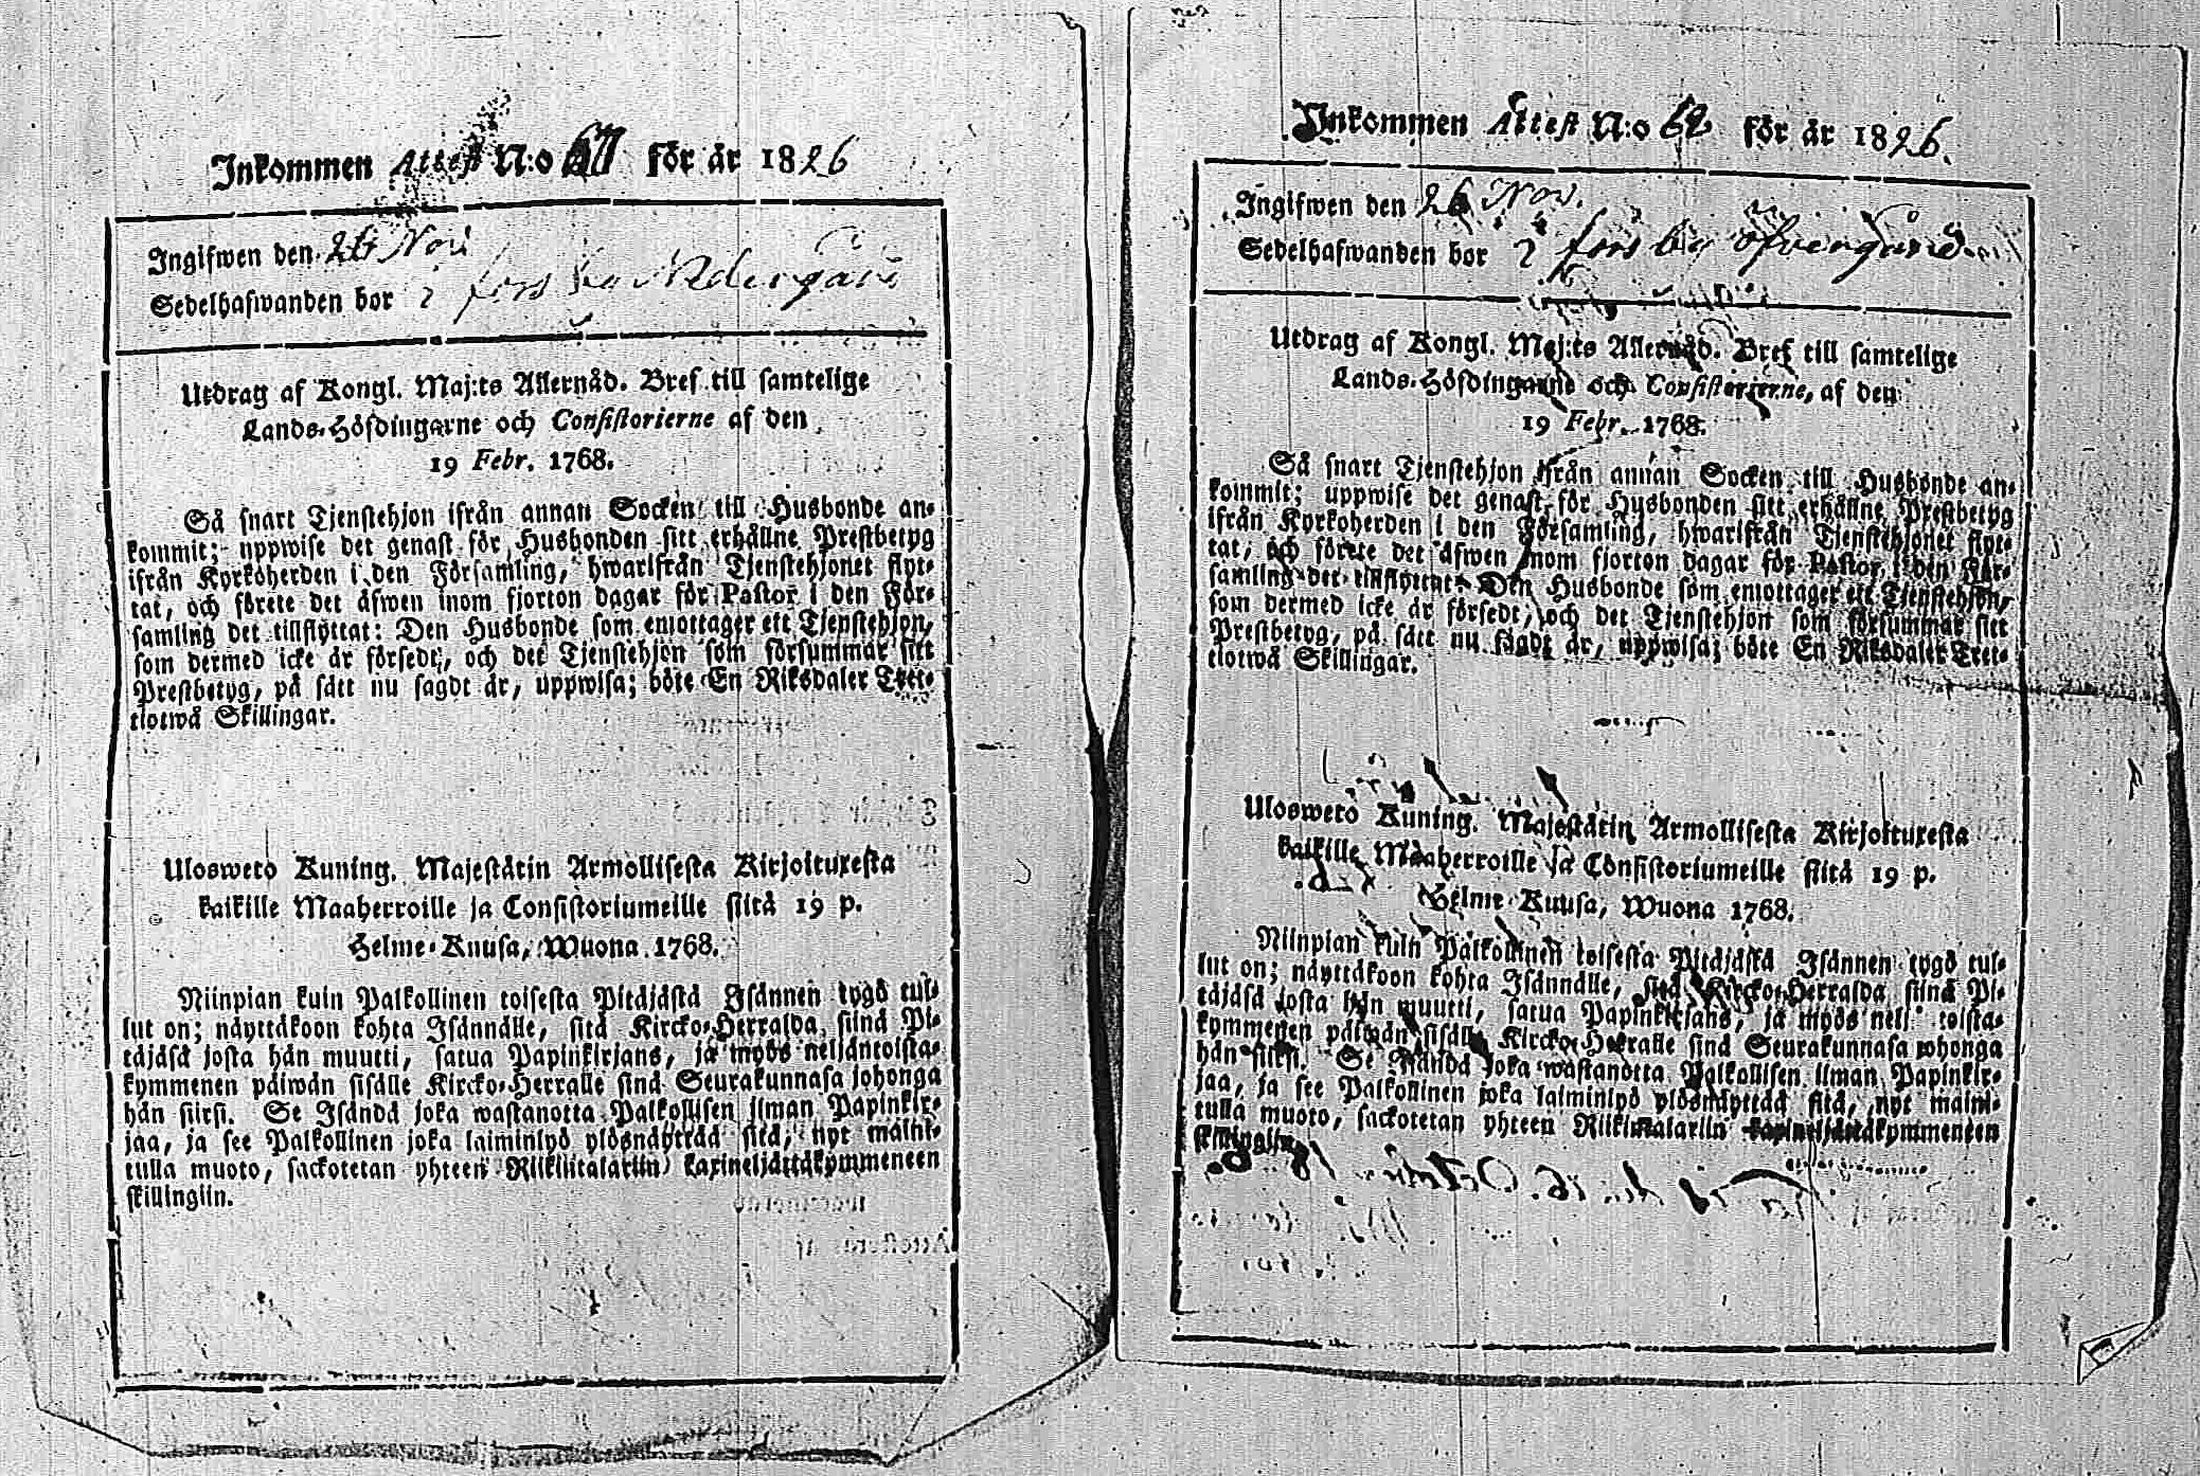 Inkommen Attest N:o 61 för år 1826
Ingifwen den 26 Nov
Sedelhafwanden bor i fors by Nedergård
Utdrag af Kongl. Maj:ts Allernåd. Bref till samtelige
Lands-Höfdingarne och Consistorierne af den
19 Febr. 1768.
Så snart Tjenstehjon ifrån annan Socken till Husbonde an-
kommit; uppwise det genast för Husbonden sitt erhållne Prestbetyg
ifrån Kyrkoherden i den Församling, hwarifrån Tjenstehjonet flyt-
tat, och förete det äfwen inom fjorton dagar för Pastor i den För-
samling det tillflyttat: Den Husbonde som emottager ett Tjenstehjon,
som dermed icke är försedt, och det Tjenstehjon som försummar sitt
Prestbetyg, på sätt nu sagdt är, uppwisa; böte En Riksdaler Tret-
tiotwå Skillingar.
Ulosweto Kuning. Majestätin Armollisesta Kirjoituxesta
kaikille Maaherroille ja Consistoriumeille siitä 19 p.
Helme-Kuusa, Wuona 1768.
Niinpian kuin Palkollinen toisesta Pitäjästä Isännen tygö tul-
lut on; näyttäkoon kohta Isännälle, sitä Kircko-Herralda siinä Pi-
täjäsä josta hän muutti, saatua Papinkirjans, ja myös neljäntoista-
kymmenen päiwän sisälle Kircko-Herralle siinä Seurakunnasa johonga
hän siirsi. Se Isändä joka wastanotta Palkollisen ilman Papinkir-
jaa, ja see Palkollinen joka laiminlyö ylösnäyttää sitä, nyt maini-
tulla muoto, sackotetan yhteen Riikiitalariin kaxineljättäkymmeneen
skillingiin.
Inkommen Attest N:o 62 för år 1826.
Ingifwen den 26 Nov.
Sedelhafwanden bor i fors by öfvergård
Utdrag af Kongl. Maj:ts Allernåd. Bref till samtelige
Lands-Höfdingarne och Consistorierne, af den
19 Febr. 1768.
Så snart Tjenstehjon ifrån annan Socken till Husbonde an-
kommit; uppwise det genast för Husbonden sitt erhållne Prestbetyg
ifrån Kyrkoherden i den Församling, hwarifrån Tjenstehjonet flyt-
tat, och förete det äfwen inom fjorton dagar för Pastor i den För-
samling det tillflyttat. Den Husbonde som emottager ett Tjenstehjon,
som dermed icke är försedt, och det Tjenstehjon som försummar sitt
Prestbetyg, på sätt nu sagdt är, uppwisa; böte En Riksdaler Tret-
tiotwå Skillingar.
Ulosweto Kuning. Majestätin Armollisesta Kirjoituxesta
kaikille Maaherroille ja Consistoriumeille siitä 19 p.
Helme-Kuusa, Wuona 1768.
Niinpian kuin Palkollinen toisesta Pitäjästä Isännen tygö tul-
lut on; näyttäkoon kohta Isännälle, sitä Kircko-Herralda siinä Pi-
täjäsä josta hän muutti, saatua Papinkirjans, ja myös nelj toista-
kymmenen päiwän sisälle Kircko-Herralle siinä Seurakunnasa johonga
hän siirsi. Se Isändä joka wastanotta Palkollisen ilman Papinkir-
jaa, ja see Palkollinen joka laiminlyö ylösnäyttää sitä, nyt maini-
tulla muoto, sackotetan yhteen Riikintalariin kaxineljättäkymmeneen
skillingiin